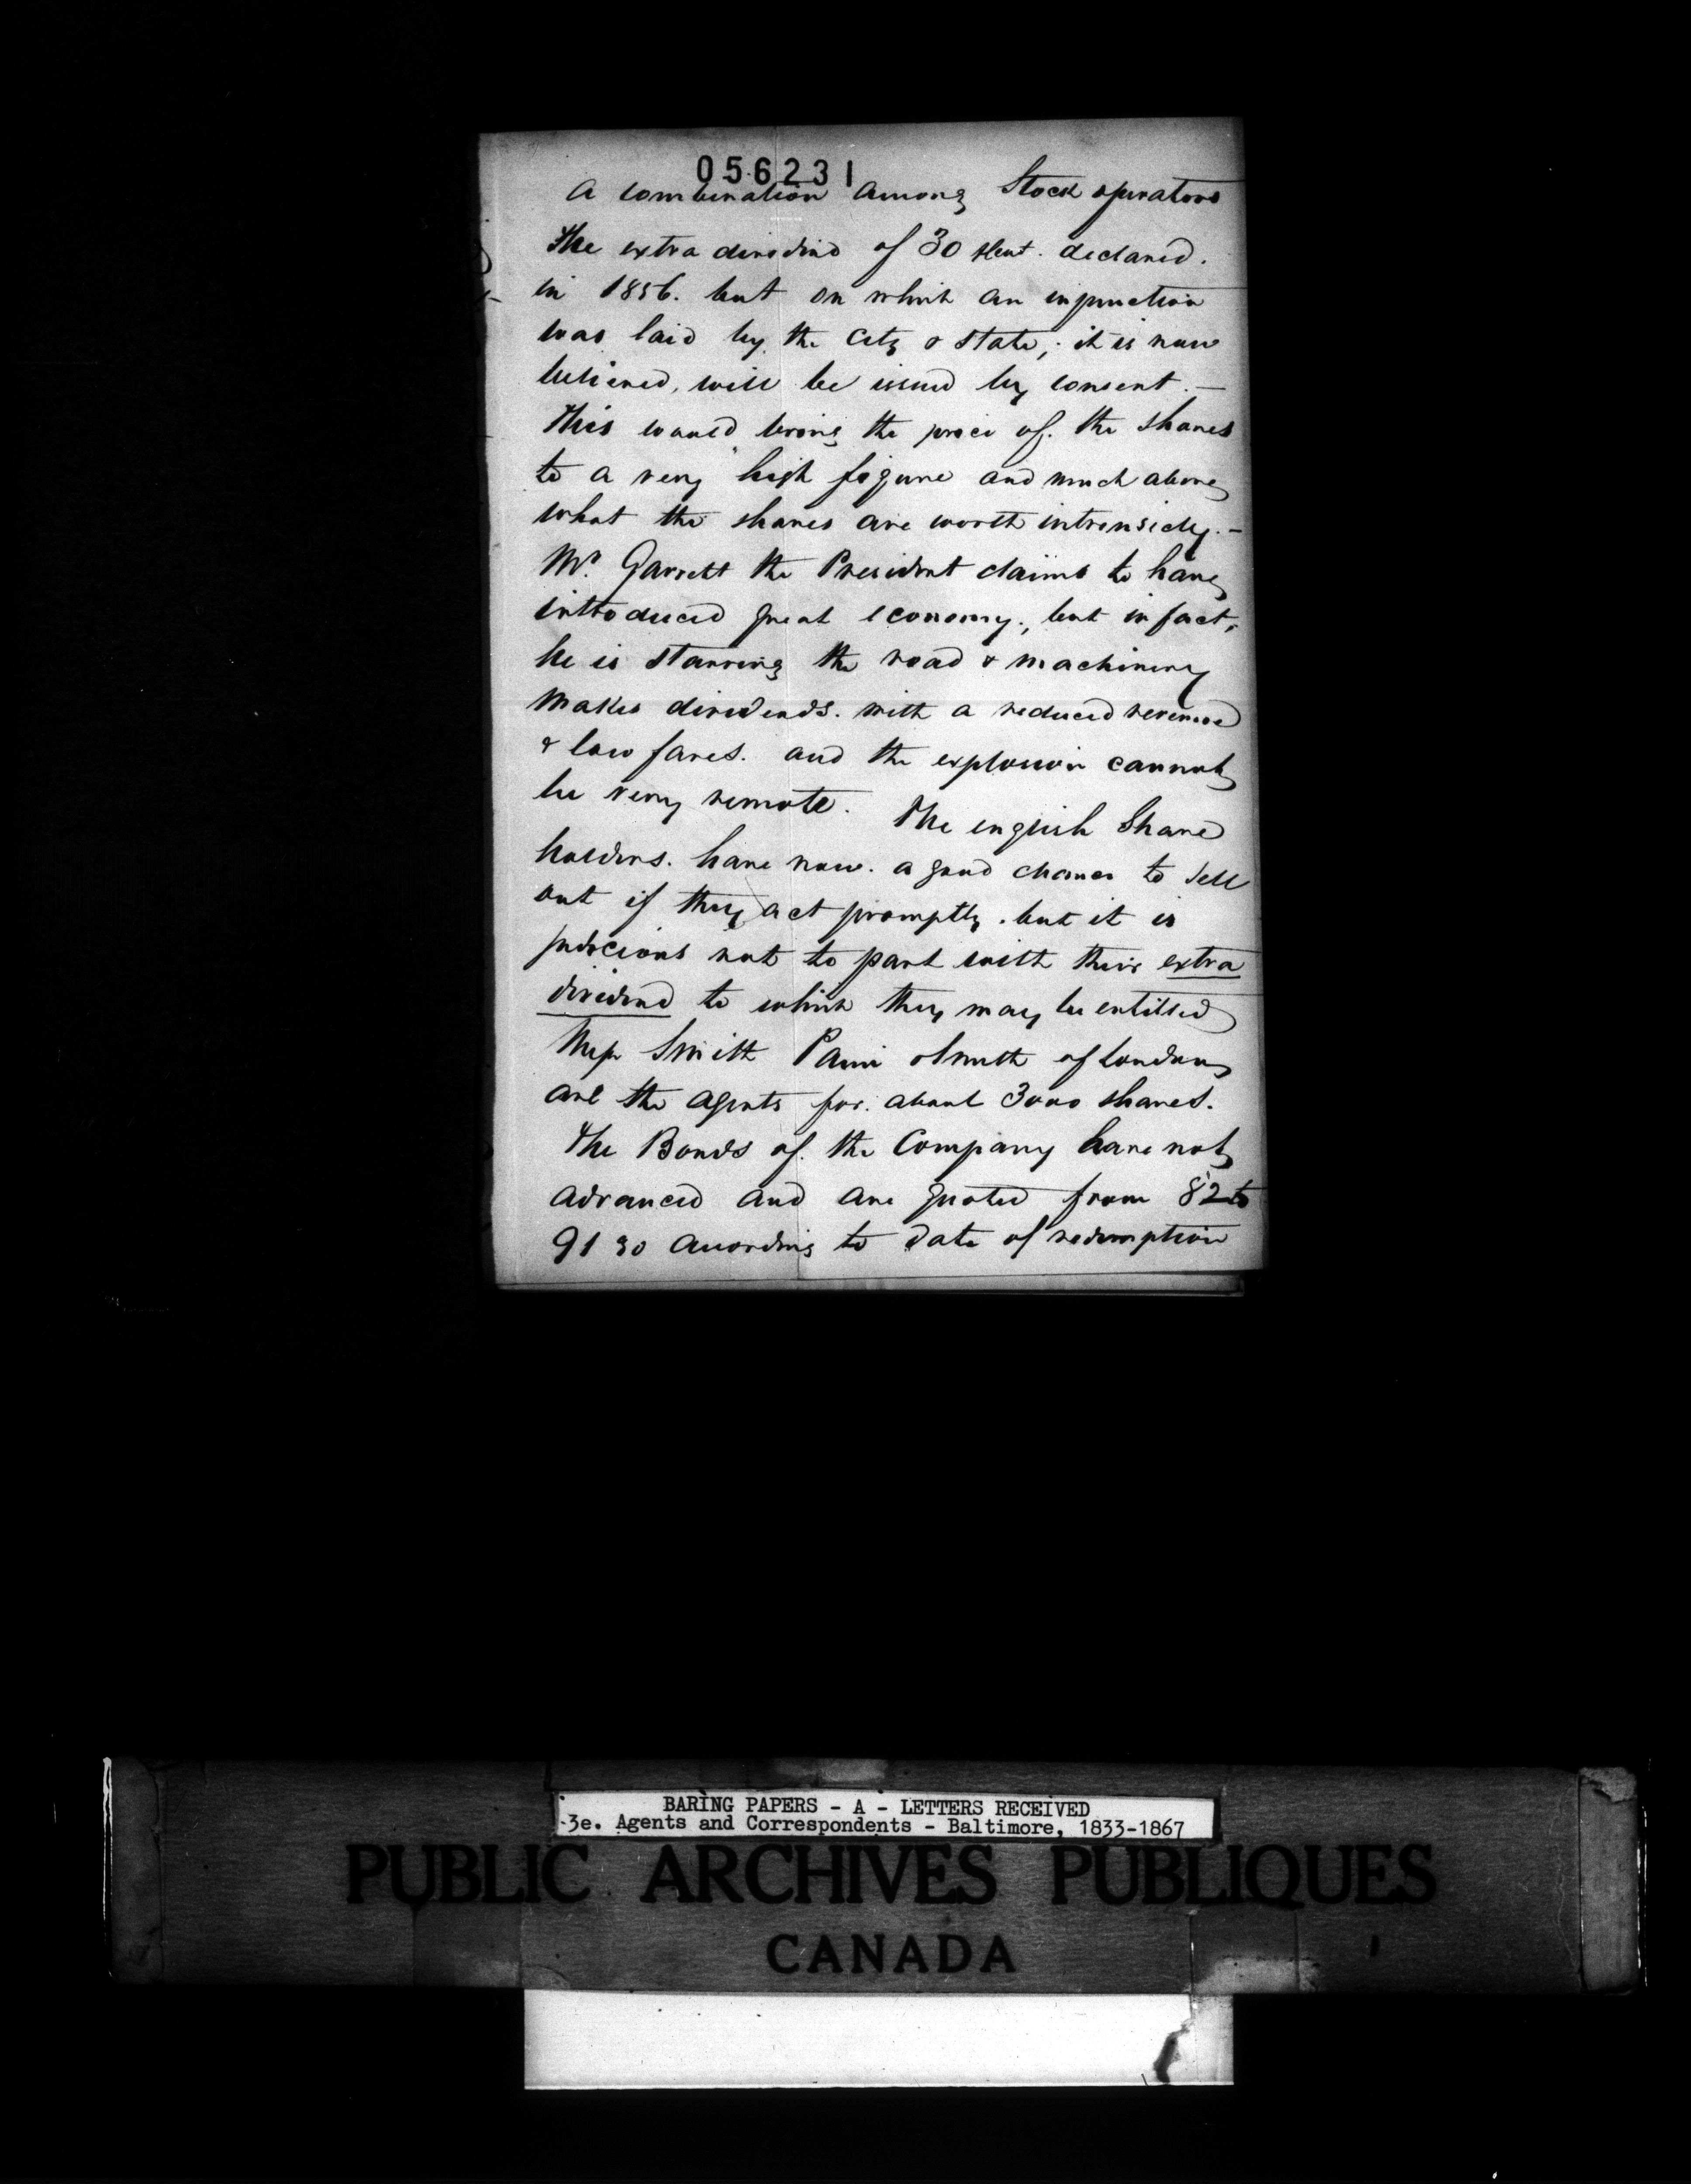 056231
a combination among Stock operators
The extra dividend of 30 pCent. declared.
in 1856. but on which an injunction
was laid by the City & State; it is now
believed, will be issued by consent. —
This would bring the price of the shares
to a very high figure and much above
what the shares are worth intrinsicly. —
Mr. Garrett the President claims to have
introduced great economy, but in fact,
he is starving the road & machinery
makes dividends. with a reduced revenue
& low fares. and the explosion cannot
be very remote. The english Share
holders. have now. a good chance to sell
out if they act promptly. but it is
judicious not to part with their extra
dividend to which they may be entitled
Messrs Smith Paine & Smith of London
are the agents for. about 3000 shares.
The Bonds of. the Company have not
advanced and are quoted from 82 to
91 according to date of redemption
BARING PAPERS - A - LETTERS RECEIVED
3e. Agents and Correspondents - Baltimore, 1833-1867
PUBLIC ARCHIVES PUBLIQUES
CANADA